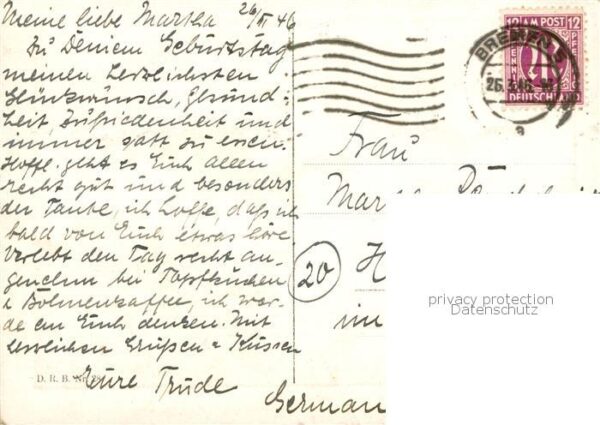 Meine liebe Martha 26/II 46
Zu Deinem Geburtstag
meinen herzlichsten
Glückwunsch, Gesund-
heit, Zufriedenheit und
immer satt zu essen.
Hoffl. geht es Euch allen
recht gut und besonders
der Tante, ich hoffe, daß ich
bald von Euch etwas höre
Verlebt den Tag recht an-
genehm bei Topfkuchen
& Bohnenkaffee, ich wer-
de an Euch denken. Mit
herzlichen Grüßen & Küssen
Eure Trude
D. R. B. Nr.
12 AM POST 12
PFENNIG
DEUTSCHLAND
BREMEN 5
a
Frau
20
H
in
German
privacy protection
Datenschutz